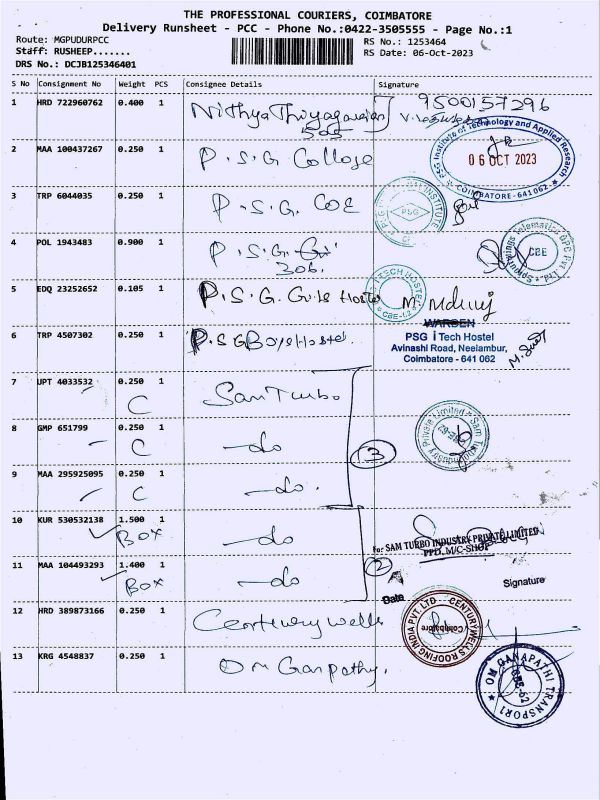 THE PROFESSIONAL COURIERS, COIMBATORE
Delivery Runsheet - PCC - Phone No.:0422-3505555 - Page No.:1
Route: MGPUDURPCC
Staff: RUSHEEP.......
DRS No.: DCJB125346401
RS No.: 1253464
RS Date: 06-Oct-2023
S No Consignment No Weight PCS Consignee Details Signature
1 HRD 722960762 0.400 1 Nithya Thiyagarajan 9500157296
305
2 MAA 100437267 0.250 1 P.S.G College
PSG Institute of Technology and Applied Research
06 OCT 2023
COIMBATORE - 641 062
3 TRP 6044035 0.250 1 P.S.G. COE
PSG
4 POL 1943483 0.900 1 P.S.G.
306.
CBE
5 EDQ 23252652 0.105 1 P.S.G. Girls Hostel
TECH HOSTEL
CBE-62
WARDEN
6 TRP 4507302 0.250 1 P.S.G Boys Hostel
PSG i Tech Hostel
Avinashi Road, Neelambur,
Coimbatore - 641 062
7 UPT 4033532 0.250 1 San Turbo
C
8 GMP 651799 0.250 1 -do
C
Sam Turbo Industry Private Limited
3
9 MAA 295925095 0.250 1 -do.
C
10 KUR 530532138 1.500 1 -do
Box
For SAM TURBO INDUSTRY PRIVATE LIMITED
PPD. M/C-SHOP
11 MAA 104493293 1.400 1 -do
Box
2
Date Signature
12 HRD 389873166 0.250 1 Century wells
CENTURYWELLS ROOFING INDIA PVT. LTD
Coimbatore
13 KRG 4548837 0.250 1 Om Ganpathy.
OM GANAPATHI TRANSPORT
CBE-62